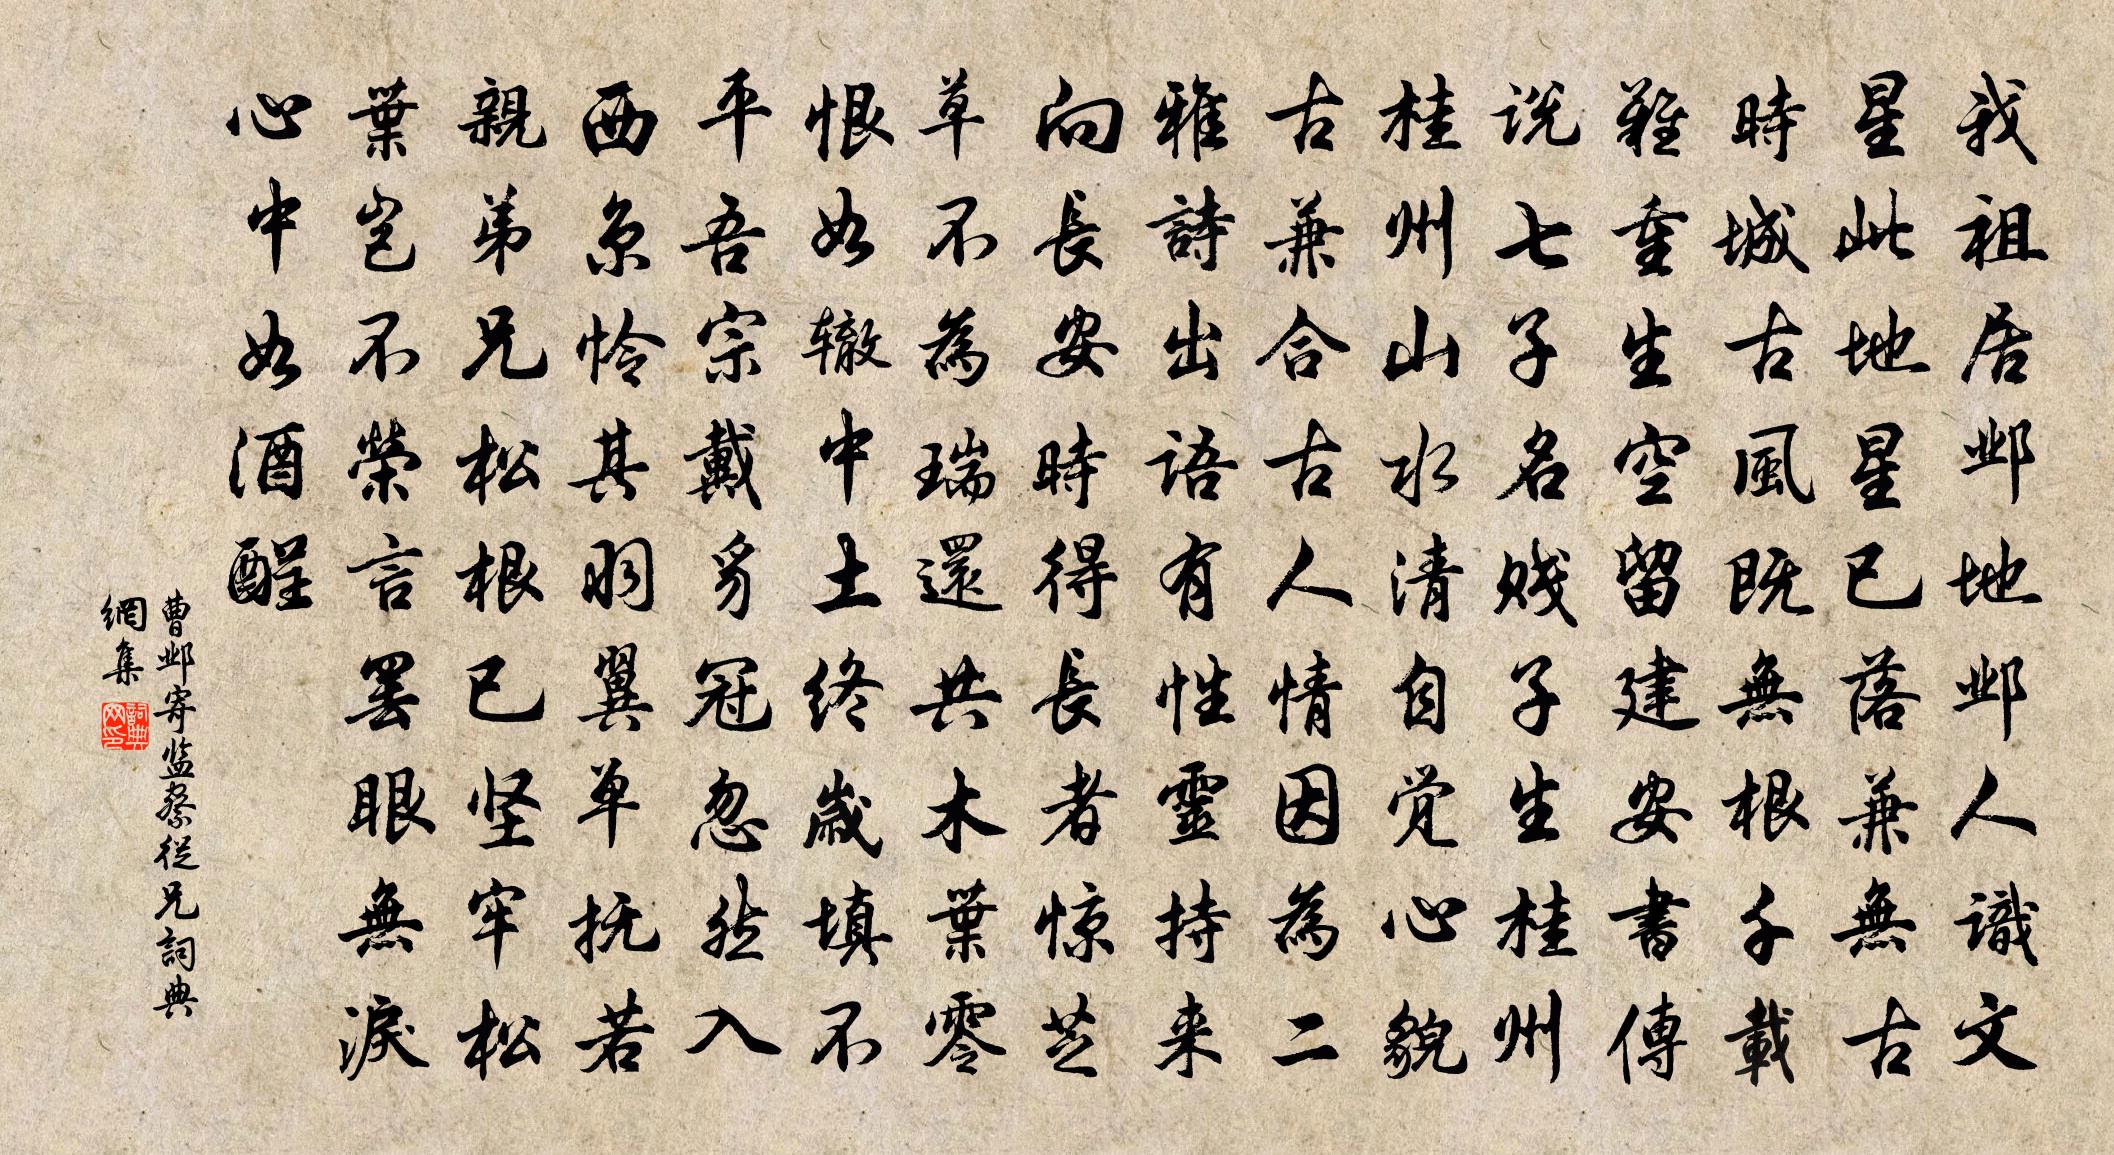 我祖居邺地邺人識文
星此地星已落兼無古
時城古風既無根千載
難重生空留建安書傳
说七子名贱子生桂州
桂州山水清自觉心貌
古兼合古人情因為二
雅詩出语有性靈持来
向長安時得長者惊芝
草不為瑞還共木葉零
恨如辙中土终歲填不
平吾宗戴豸冠忽然入
西京怜其羽翼单抚若
親弟兄松根已坚牢松
葉岂不榮言罢眼無淚
心中如酒醒
曹邺寄监察従兄詞典
網集
詞典网印